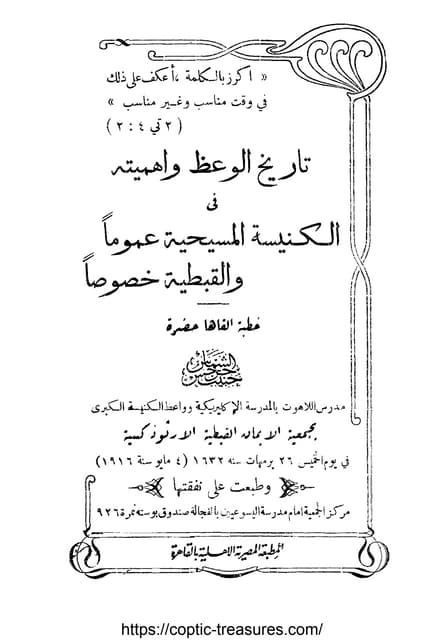 « اكرز بالكلمة ، أعكف على ذلك
في وقت مناسب وغير مناسب »
( ٢ تي ٤ : ٢ )
تاريخ الوعظ واهميته
فى
الكنيسة المسيحية عموماً
والقبطية خصوصاً
خطبة القاها حضرة
الشماس
حبيب جرجس
مدرس اللاهوت بالمدرسة الإكليريكية وواعظ الكنيسة الكبرى
بجمعية الايمان القبطية الارثوذكسية
في يوم الخميس ٢٦ برمهات سنه ١٦٣٢ ( ٤ مايو سنة ١٩١٦ )
وطبعت على نفقتها
مركز الجمعية امام مدرسة اليسوعيين بالفجالة صندوق بوسته نمرة ٩٢٦
المطبعة المصرية الاهلية بالقاهرة
https://coptic-treasures.com/